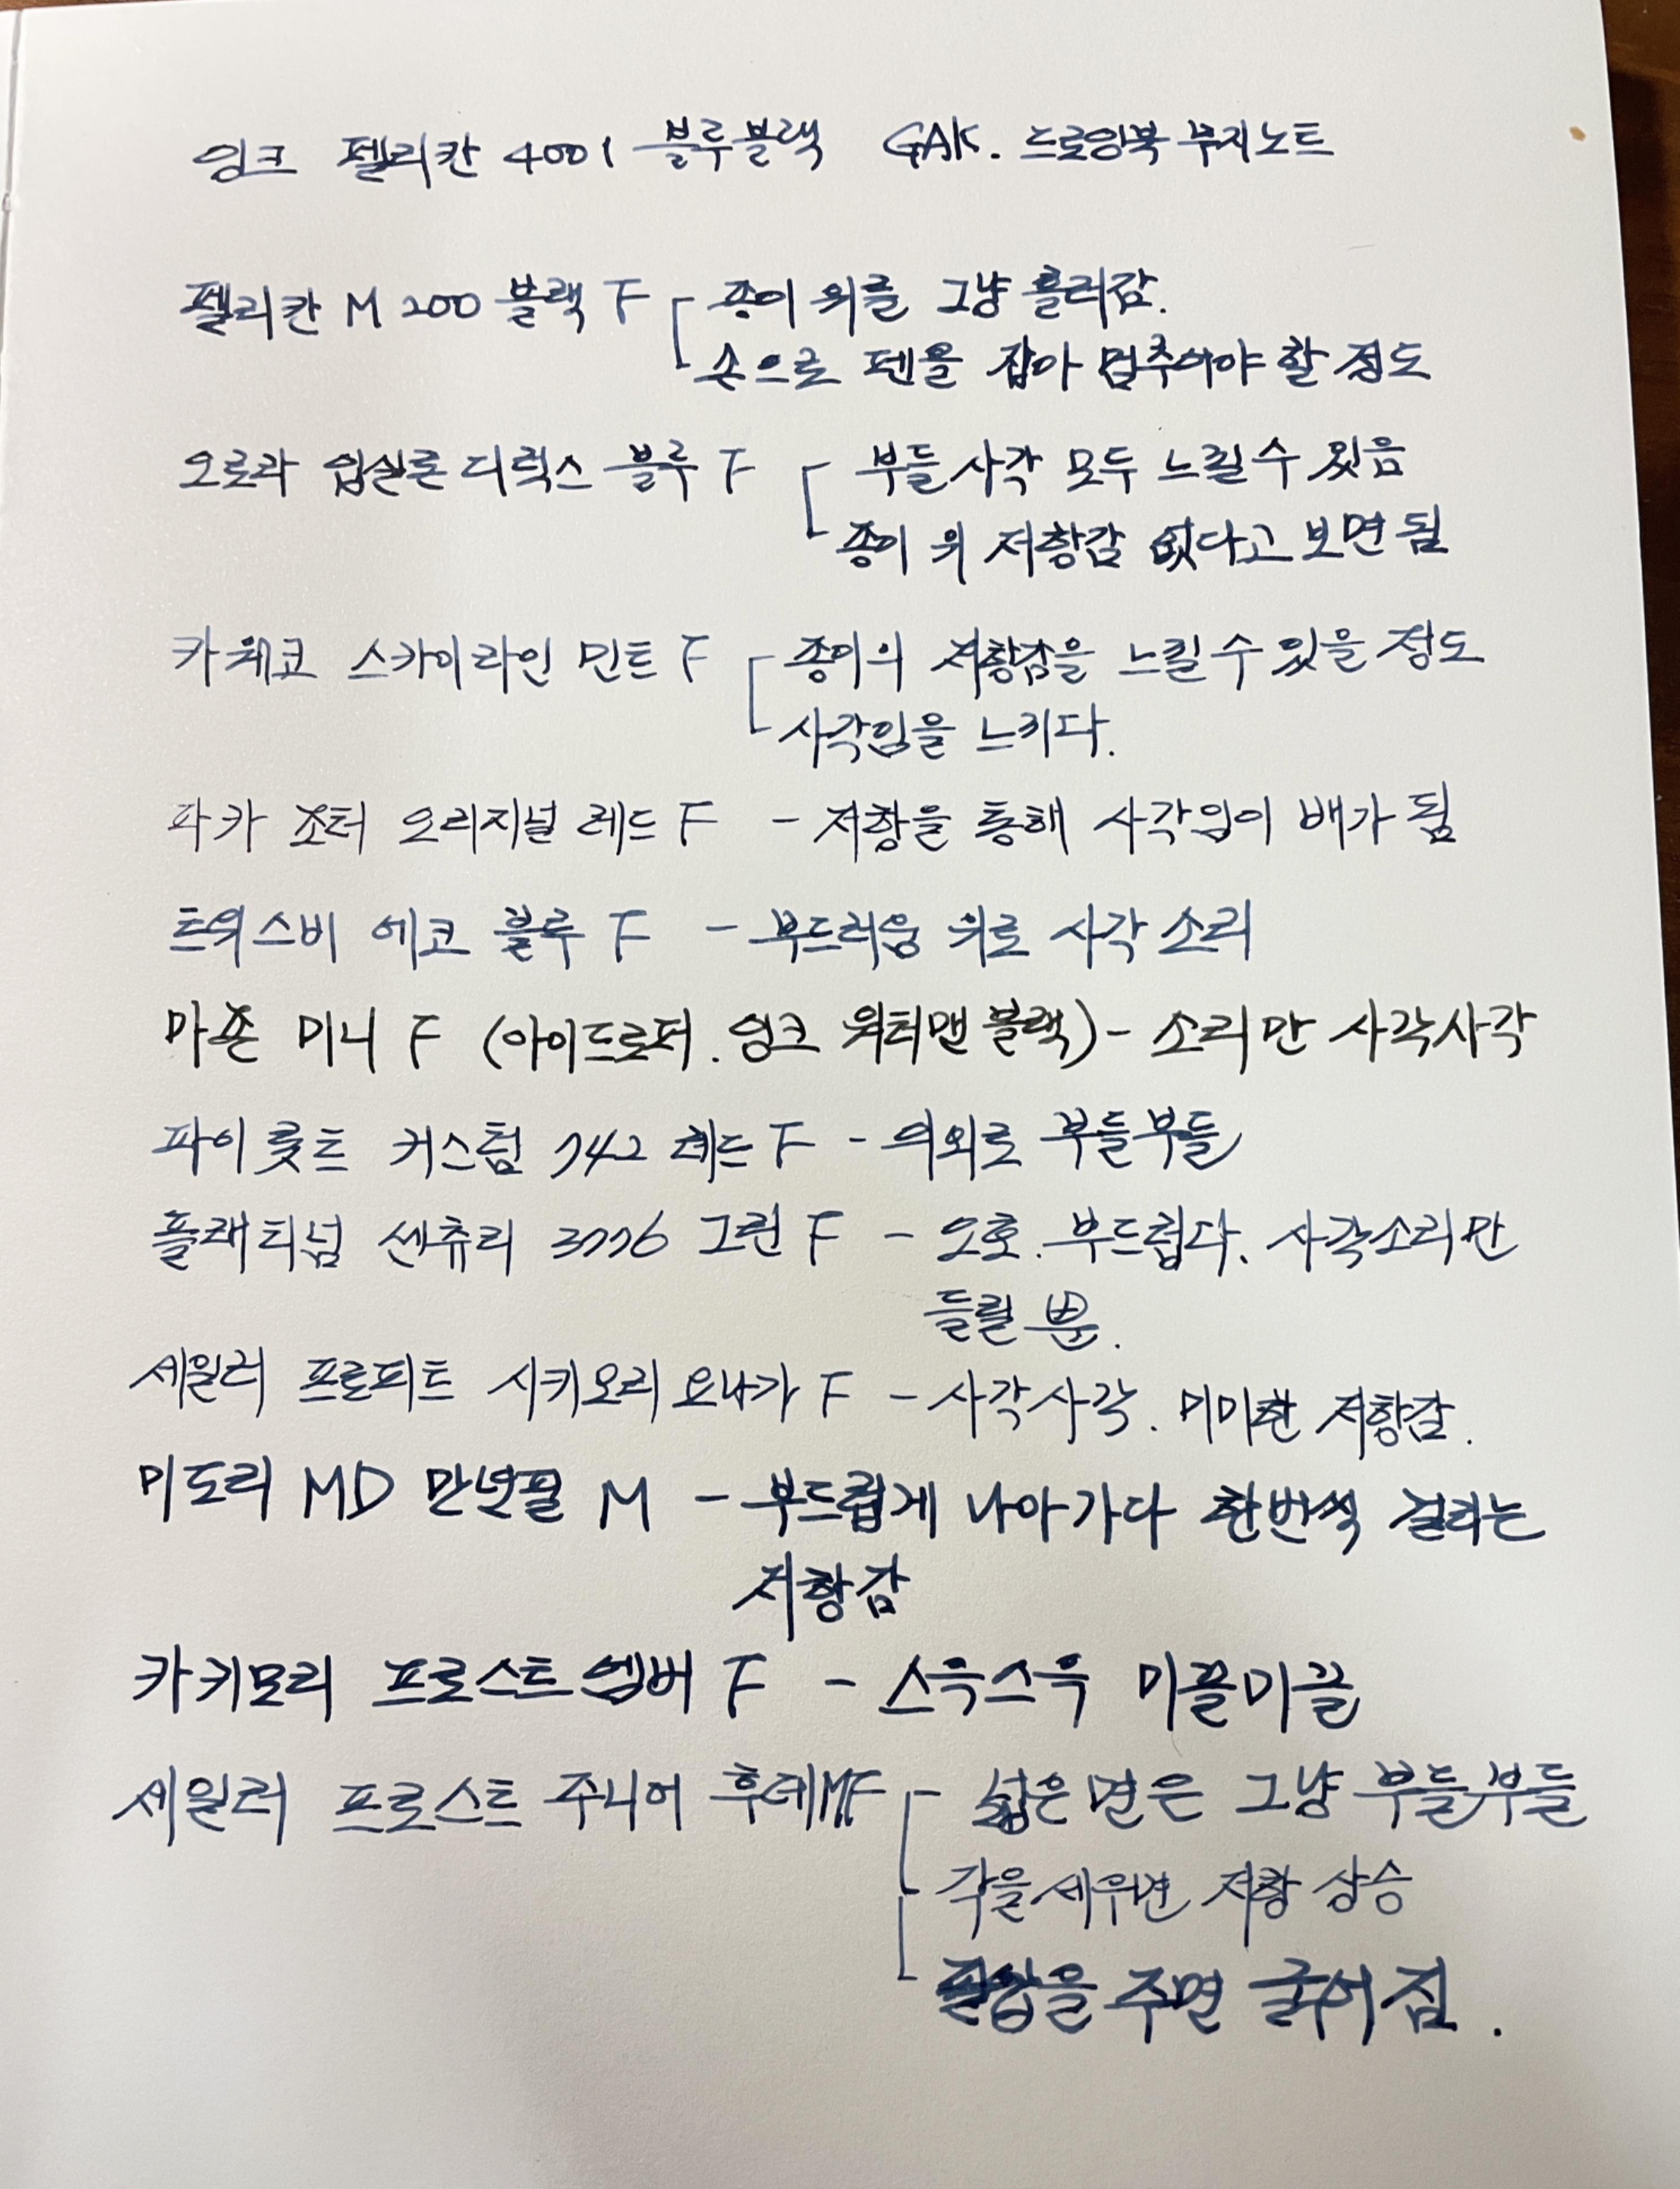 잉크 펠리칸 4001 블루블랙 GAK. 드로잉북 무지노트
펠리칸 M200 블랙 F - 종이 위를 그냥 흘러감.
- 손으로 펜을 잡아 멈추어야 할 정도
오로라 입실론 디럭스 블루 F - 부들 사각 모두 느낄 수 있음
- 종이 위 저항감 없다고 보면 됨
카웨코 스카이라인 민트 F - 종이의 저항감을 느낄 수 있을 정도
- 사각임을 느끼다.
파카 조터 오리지널 레드 F - 저항을 통해 사각임이 배가 됨
트위스비 에코 블루 F - 부드러움 위로 사각 소리
마죤 미니 F (아이드로퍼. 잉크 워터맨 블랙) - 소리만 사각사각
파이롯트 커스텀 742 레드 F - 의외로 부들부들
플래티넘 센츄리 3776 그린 F - 오호. 부드럽다. 사각소리만
들릴 뿐.
세일러 프로피트 시키오리 요나가 F - 사각사각. 미미한 저항감.
미도리 MD 만년필 M - 부드럽게 나아가다 한번씩 걸리는
저항감
카키모리 프로스트 엠버 F - 스윽스윽 미끌미끌
세일러 프로스트 주니어 후데MF - 넓은 면은 그냥 부들부들
- 각을 세우면 저항 상승
- 필압을 주면 굵어짐.